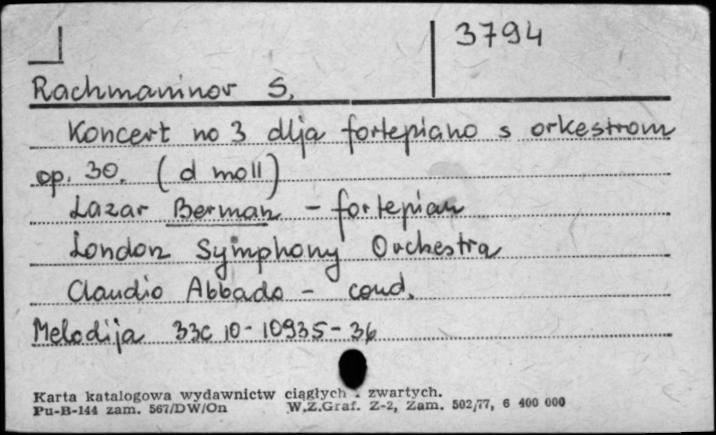 3794
Rachmaninov S.
Koncert no 3 dlja fortepiano s orkestrom
op. 30. (d moll)
Lazar Berman - fortepian
London Symphony Orchestra
Claudio Abbado - cond.
Melodija 33c 10-10935-36
Karta katalogowa wydawnictw ciągłych i zwartych.
Pu-B-144 zam. 567/DW/On W.Z.Graf. Z-2, Zam. 502/77, 6 400 000